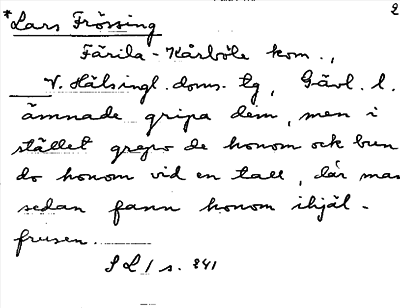 2
*Lars Frössing
Färila-Kårböle kom.,
V. Hälsingl. doms. tg, Gävl. l.
ämnade gripa dem, men i
stället grepo de honom ock bun
do honom vid en tall, där man
sedan fann honom ihjäl-
frusen.
SL 1 s. 241